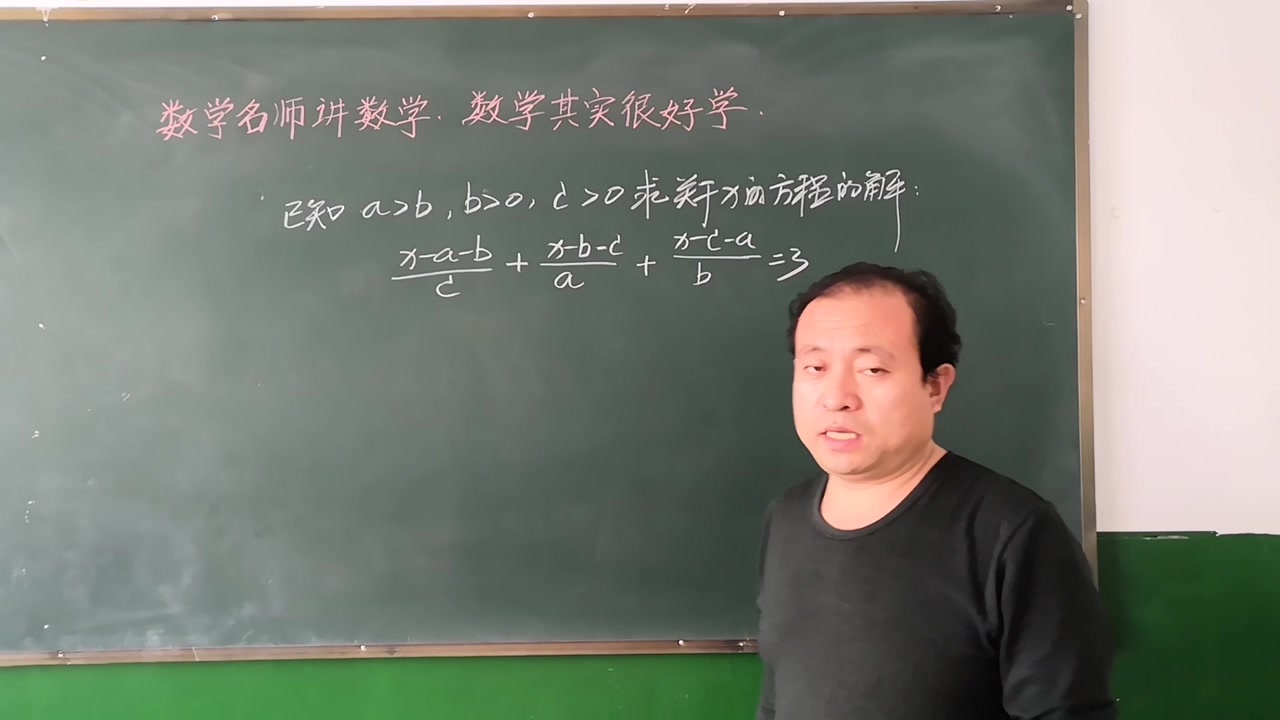 数学名师讲数学.数学其实很好学.
已知 a>b,b>0,c>0求关于x的方程的解:
x-a-b/c + x-b-c/a + x-c-a/b =3